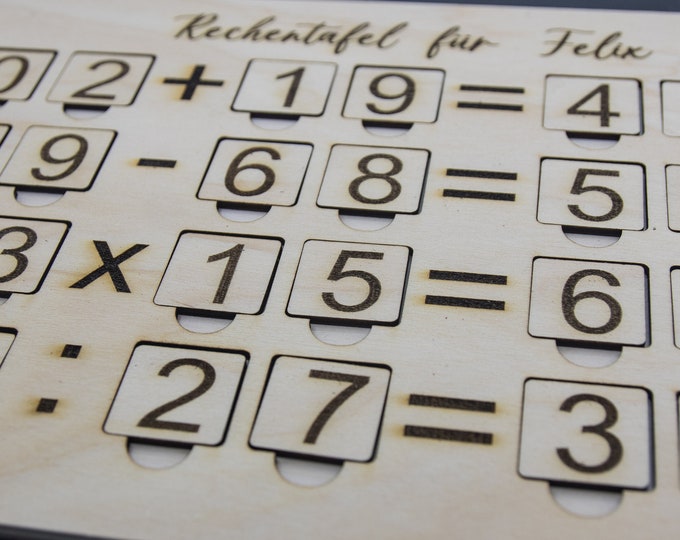 Rechentafel für Felix
02 + 19 = 4
9 - 68 = 5
3 x 15 = 6
: 27 = 3